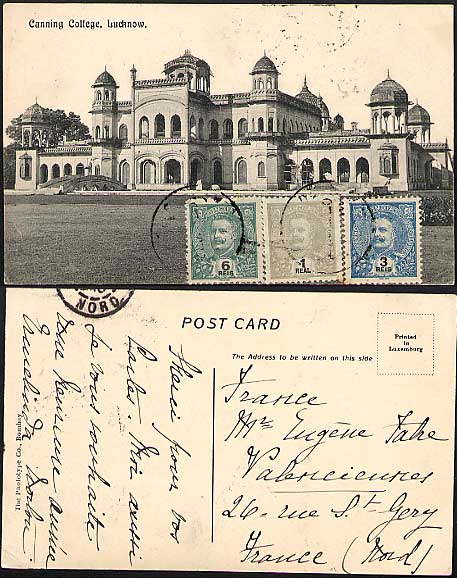 Canning College, Lucknow.
6
REIS
1
REAL
3
REIS
NORD
POST CARD
The Address to be written on this side
Printed
in
Luxemburg
The Phototype Co., Bombay.
Merci pour vos
Cartes - Moi aussi
je vous souhaite
une heureuse année
France
Mr Eugène Fabre
Valenciennes
26 - rue St Gery
France (Nord)